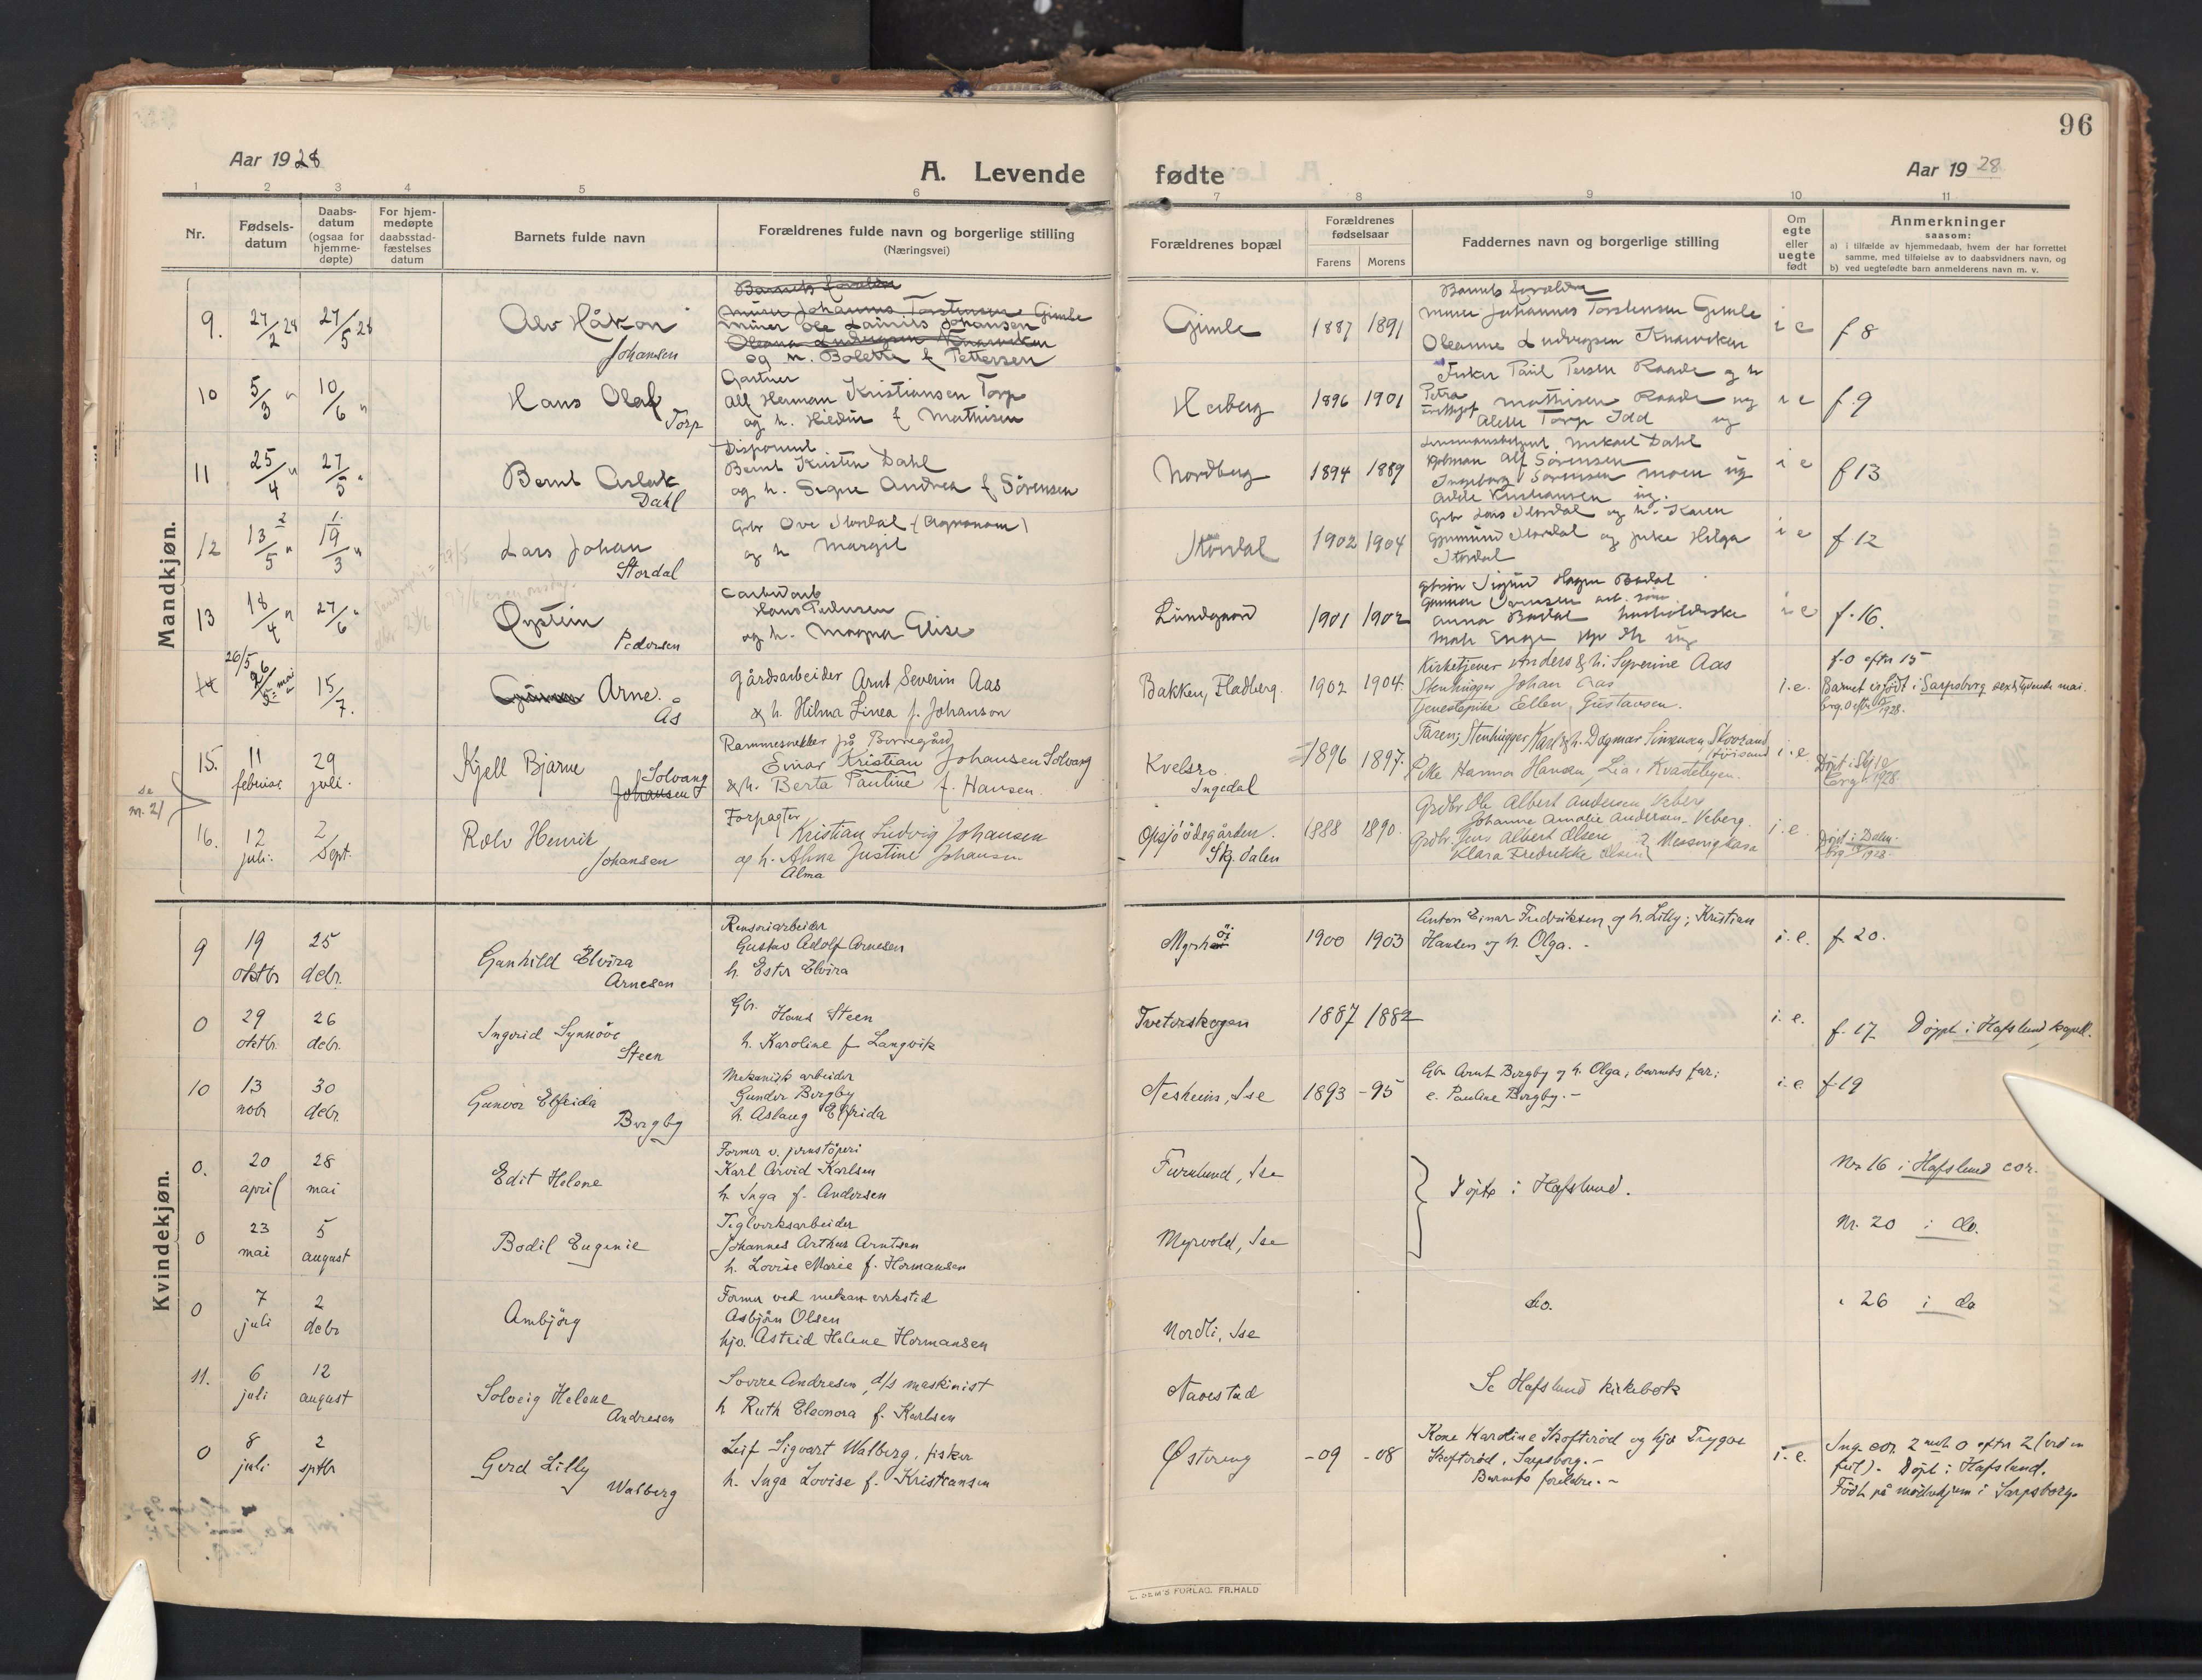 96
Aar 1928
A. Levende
fødte
Aar 1928
1 2 3 4 5 6 7 8 9 10 11
Nr.
Fødsels-
datum
Daabs-
datum
(ogsaa for
hjemme-
døpte)
For hjem-
medøpte
daabsstad-
fæstelses
datum
Barnets fulde navn
Forældrenes fulde navn og borgerlige stilling
(Næringsvei)
Forældrenes bopæl
Forældrenes
fødselsaar
Farens Morens
Faddernes navn og borgerlige stilling
Om
egte
eller
uegte
født
Anmerkninger
saasom:
a) i tilfælde av hjemmedaab, hvem der har forrettet
samme, med tilføielse av to daabsvidners navn, og
b) ved uegtefødte barn anmelderens navn m. v.
Mandkjøn.
9. 27/2 28 27/5 28
Alv Håkon
Johansen
Barnets foreldre
Murer Johannes Torstensen Gimle
Murer Ole Lauritz Johansen
Oleana Ludvigsen Knarviken
og h. Bolette f Pettersen
Gimle 1887 1891
Barnets foreldre
Murer Johannes Torstensen Gimle
Oleanne Ludvigsen Knarviken
i e f 8
10 5/3 " 10/6 "
Hans Olaf
Torp
Gartner
Alf Herman Kristiansen Torp
og h. Hildur f Mathisen
Herberg 1896 1901
Fisker Paul Persen Raade og h
Petra Mathisen Raade ug
Alette Torp Idd ug
i e f. 9
11 25/4 " 27/5 "
Bernt Aslak
Dahl
Disponent
Bernt Kristen Dahl
og h. Signe Andrea f Sörensen
Nordberg 1894 1889
Lensmansbetjent Mikael Dahl
Alf Sörensen
Ingeborg Sörensen Moen ug
Kristiansen ug.
i e f 13
12 13/5 " 19/3 "
Lars Johan
Stordal
Gbr Ove Stordal (Agronom)
og h Margit
Stordal 1902 1904
Gbr Lars Stordal og h. Karen
Gudmund Stordal og pike Helga
Stordal
i e f. 12
13 18/4 " 27/6 "
Øystein
Pedersen
Carbidarb
Hans Pedersen
og h. Magna Elise
Lundgaard 1901 1902
Anna husholderske
i e f. 16.
14 26/5 26/5 = mai 15/7.
Arne.
Ås
Gårdsarbeider Arnt Severin Aas
& h. Hilma Linea f. Johanson
Bakken, Fladberg. 1902 1904.
Kirketjener Anders & h. Syverine Aas
Stenhugger Johan Aas
tjenestepike Ellen Gustavsen.
i.e.
f. 0 efter 15
Barnet er født i Sarpsborg sekstyvende mai.
1928.
15. 11 februar 29 juli.
Kjell Bjarne
Solvang
Johansen
på Borregård
Einar Kristian Johansen Solvang
& h. Berta Pauline f. Hansen.
Kvelsro
Ingedal
1896 1897.
Faren; Stenhugger Karl & h. Dagmar Simensen, Skovsand
Høisand
Pike Hanna Hansen, Lia i Kvastebyen.
i. e.
1928.
se
nr. 21
16. 12 juli. 2 Sept.
Rolv Henrik
Johansen
Forpagter
Kristian Ludvig Johansen
og h. Alma Justine Johansen
Alma
Opsjöödegården.
Skj. dalen
1888 1890.
Grdbr. Ole Albert Andersen Veberg
Johanne Amalie Andersen - Veberg.
Grdbr. Jens Albert Olsen
Klara Fredrikke Olsen
i. e.
Döpt i Dalen.
1928.
Kvindekjøn.
9 19 oktbr 25 debr.
Gunhild Elvira
Arnesen
Renseriarbeider
Gustav Adolf Arnesen
h. Ester Elvira
Myrhöi 1900 1903
Anton Einar Fredriksen og h. Lilly; Kristian
Hansen og h. Olga. -
i. e. f. 20.
0 29 oktbr. 26 debr.
Ingerid Synnöve
Steen
Gbr. Hans Steen
h. Karoline f Langvik
Tveterskogen 1887 1882
i. e. f. 17 Döpt i Hafslund kapell.
10 13 nobr 30 debr.
Gunvor Elfrida
Bergby
Mekanisk arbeider
Gunder Bergby
h. Aslaug Elfrida
Nesheim, Ise 1893 -95
Gbr. Arnt Bergby og h. Olga; barnets far;
e. Pauline Bergby. -
i. e f 19
0. 20 april 28 mai
Edit Helene
Former v. jernstöperi
Karl Arvid Karlsen
h. Inga f. Andersen
Furulund, Ise
Döpte i Hafslund.
Nr 16 i Hafslund cor.
0 23 mai 5 august
Bodil Eugenie
Teglverksarbeider
Johannes Arthur Arntsen
h. Lovise Marie f. Hermansen
Myrvold, Ise
Nr. 20 i do.
0 7 juli 2 debr
Ambjörg
Former ved mekan verksted
Asbjön Olsen
hjv. Astrid Helene Hermansen
Nordli, Ise
do.
" 26 i do
11. 6 juli 12 august
Solveig Helene
Andresen
Sverre Andresen, d/s maskinist
h. Ruth Eleonora f. Karlsen
Navestad
Se Hafslund kirkebok
0 8 juli 2 sptbr
Gerd Lilly
Walberg
Leif Sigvart Walberg, fisker
h. Inga Lovise f. Kristiansen
Östereng -09 -08
Kone Karoline Skofteröd og hjv Trygve
Skofteröd, Sarpsborg. -
Barnets foreldre. -
i. e.
Ing. cor. 2 nch 0 efter 2 (ved en
feil). Döpt i Hafslund.
Född på mödrehjem i Sarpsborg.
E. SEM'S FORLAG, FR.HALD